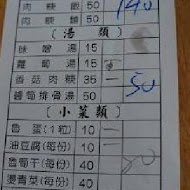 肉粳飯 50
肉粳 50 140
〔湯類〕
味噌湯 15
蘿蔔湯 15 一
香菇肉粳 35 一 50
醬筍排骨湯 50
〔小菜類〕
魯蛋(1粒) 10 一
油豆腐(每份) 10 一
魯筍干(每份) 40
燙青菜(每份) 40